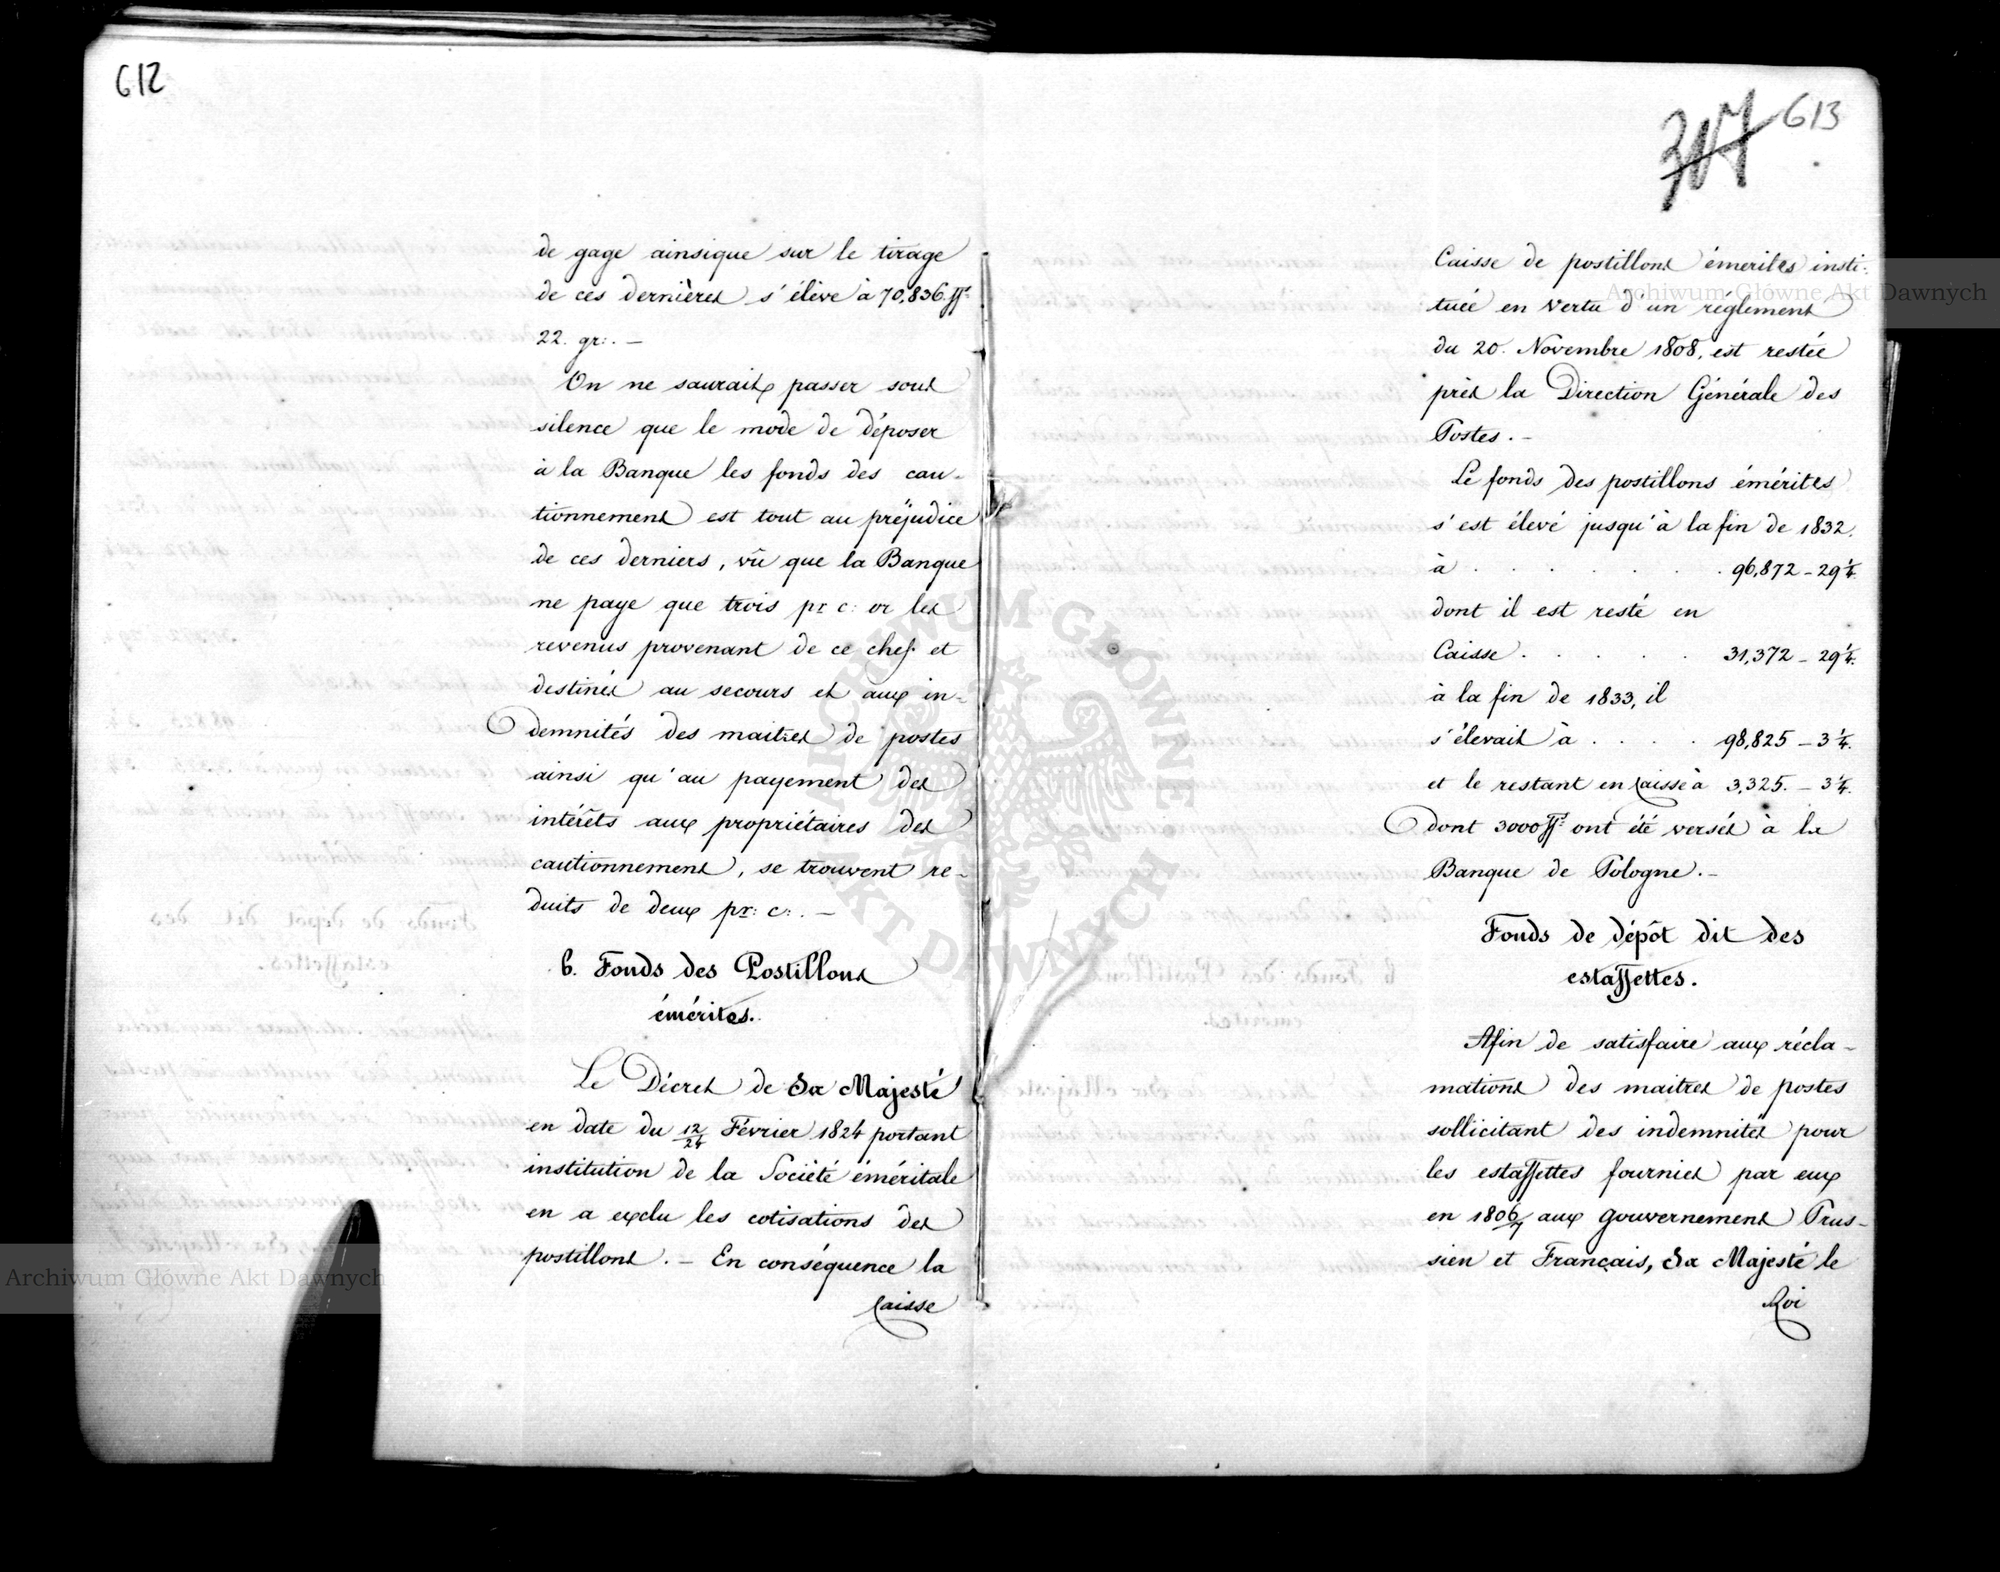 612
de gage ainsique sur le tirage
de ces dernières s'élève à 70,836 ff.
22. gr: . —
On ne saurait passer sous
silence que le mode de déposer
à la Banque les fonds des cau-
tionnemens est tout au préjudice
de ces derniers, vû que la Banque
ne paye que trois pr c: or les
revenus provenant de ce chef et
destinés au secours et aux in-
demnités des maitres de postes
ainsi qu'au payement des
intérêts aux propriétaires des
cautionnemens, se trouvent re-
duits de deux pr: c: . —
b. Fonds des Postillons
émérites.
Le Décret de Sa Majesté
en date du 12/24 Février 1824 portant
institution de la Société éméritale
en a exclu les cotisations des
postillons. — En conséquence la
Caisse
613
Caisse de postillons émerites insti-
tuée en vertu d'un réglement
du 20. Novembre 1808, est restée
près la Direction Générale des
Postes. —
Le fonds des postillons émérites
s'est élevé jusqu'à la fin de 1832.
à . . . . . . . 96,872 — 29 1/4.
dont il est resté en
Caisse . . . . . 31,372 — 29 1/4.
à la fin de 1833, il
s'élevait à . . . . 98,825 — 3 1/4.
et le restant en Caisse à 3,325. — 3 1/4.
dont 3000 ff. ont été versés à la
Banque de Pologne. —
Fonds de dépôt dit des
estaffettes.
Afin de satisfaire aux récla-
mations des maitres de postes
sollicitant des indemnités pour
les estaffettes fournies par eux
en 1806/7 aux gouvernemens Prus-
sien et Français, Sa Majesté le
Roi
Archiwum Główne Akt Dawnych
Archiwum Główne Akt Dawnych
ARCHIWUM GŁÓWNE AKT DAWNYCH